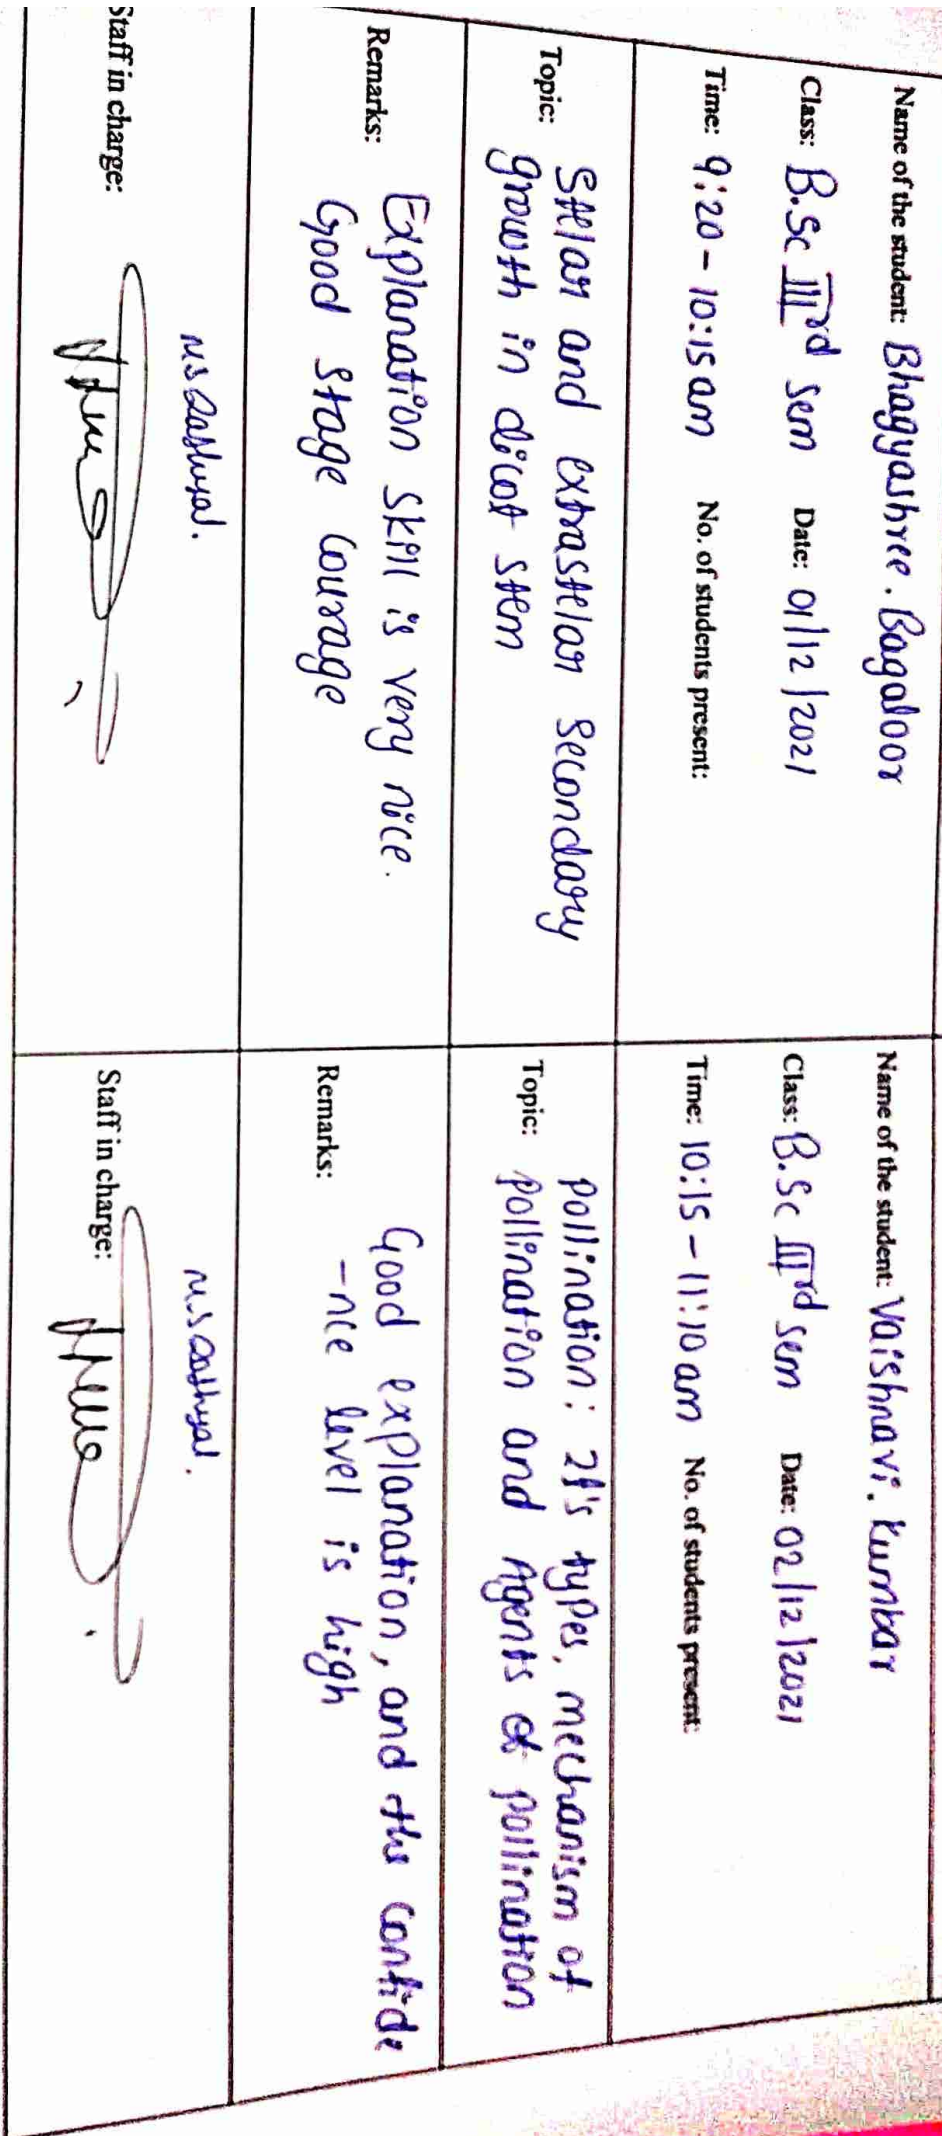 Name of the student: Bhagyashree. Bagaloor
Class: B.Sc IIIrd sem Date: 01/12/2021
Time: 9:20 - 10:15 am No. of students present:
Topic: Stelar and extrastelar secondary
growth in dicot stem
Remarks: Explanation skill is very nice.
Good stage courage
Staff in charge:
Name of the student: Vaishnavi. Kumbar
Class: B.Sc IIIrd sem Date: 02/12/2021
Time: 10:15 - 11:10 am No. of students present:
Topic: pollination: It's types, mechanism of
pollination and Agents of pollination
Remarks: Good explanation, and the confide
-nce level is high
Staff in charge: